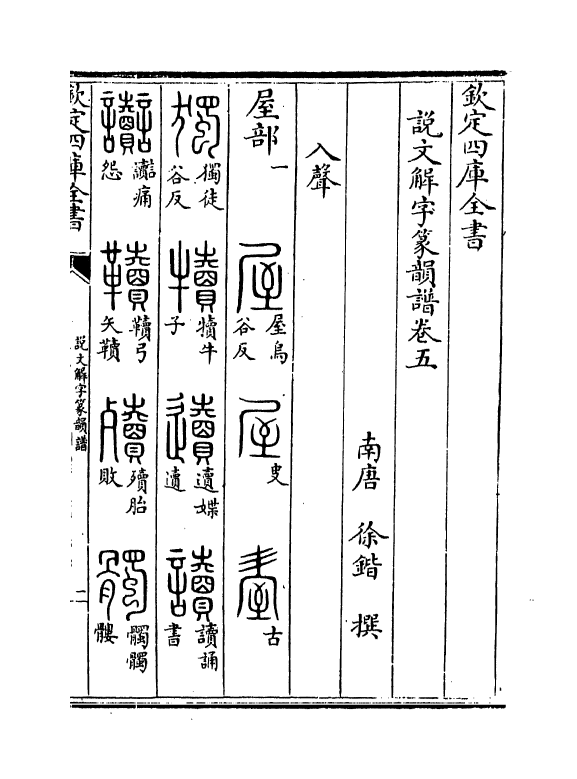 欽定四庫全書
說文解字篆韻譜卷五
南唐 徐鍇 撰
入聲
屋部一 屋 屋烏谷反 屋 㕜 𡌳 古
獨 獨徒谷反 犢 犢牛子 遺 遺媟遺 讀 讀誦書
讟 讟痛怨 韇 韇弓矢韇 殰 殰胎敗 髑 髑髑髏
欽定四庫全書
說文解字篆韻譜
二